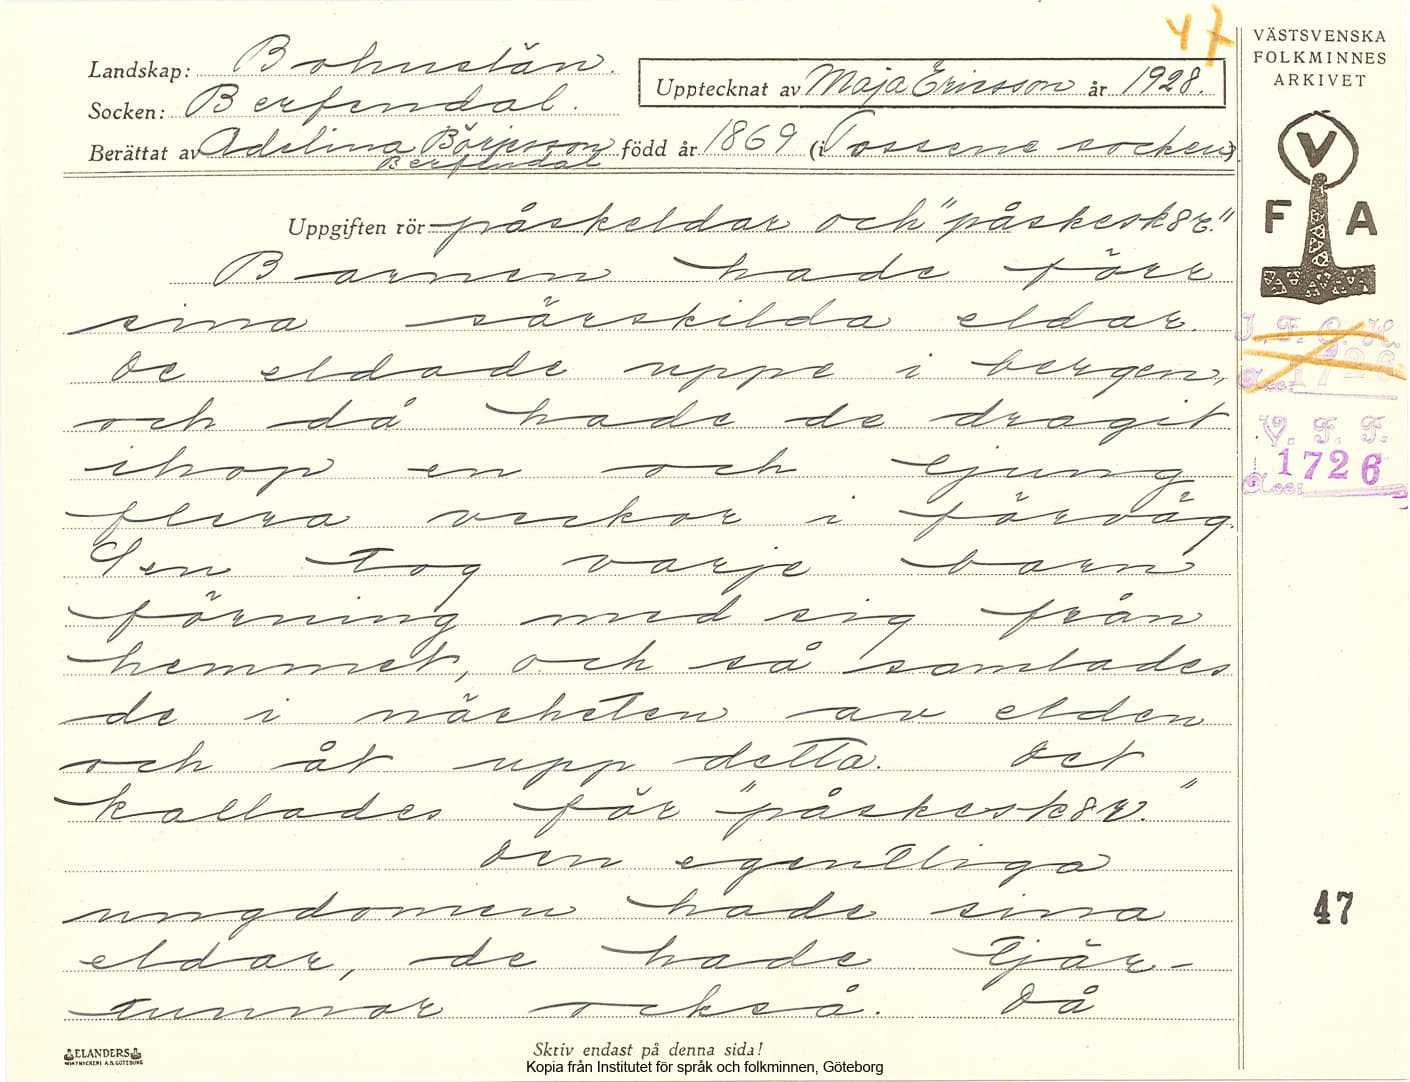 47
VÄSTSVENSKA
FOLKMINNES
ARKIVET
Landskap: Bohuslän.
Socken: Berfendal.
Upptecknat av Maja Ericsson år 1928.
Berättat av Adelina Börjesson född år 1869 (i Tossene socken)
Berfendal
Uppgiften rör påskeldar och "påskesk8r."
Barnen hade förr
sina särskilda eldar.
De eldade uppe i bergen,
och då hade de dragit
ihop en och ljung
flera veckor i förväg.
Sen tog varje barn
förning med sig från
hemmet, och så samlades
de i närheten av elden
och åt upp detta. Det
kallades för "påskesk8r."
Den egentliga
ungdomen hade sina
eldar, de hade tjär-
tunnor också. Då
V
F A
I. F. G. H.
Acc: 1726
V. F. F.
Acc: 1726
47
ELANDERS
Skriv endast på denna sida!
Kopia från Institutet för språk och folkminnen, Göteborg